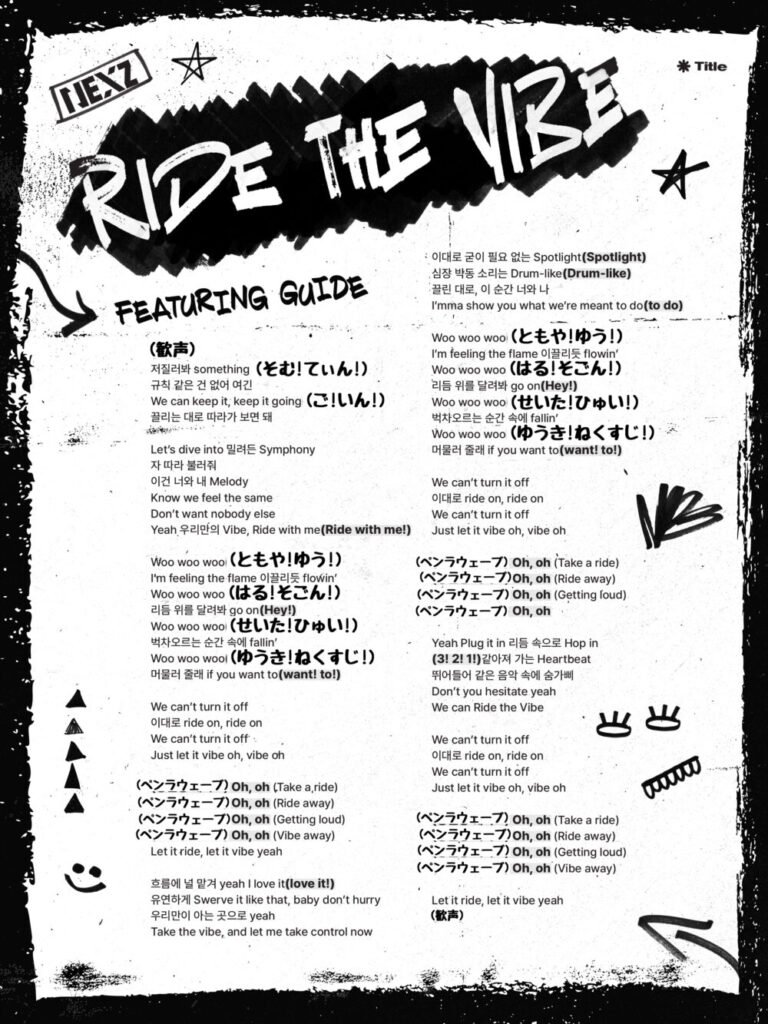 NEXZ
✱ Title
RIDE THE VIBE
FEATURING GUIDE
(歓声)
저질러봐 something (そむ!てぃん!)
규칙 같은 건 없어 여긴
We can keep it, keep it going (ご!いん!)
끌리는 대로 따라가 보면 돼
Let's dive into 밀려든 Symphony
자 따라 불러줘
이건 너와 내 Melody
Know we feel the same
Don't want nobody else
Yeah 우리만의 Vibe, Ride with me(Ride with me!)
Woo woo woo (ともや!ゆう!)
I'm feeling the flame 이끌리듯 flowin'
Woo woo woo (はる!そごん!)
리듬 위를 달려봐 go on(Hey!)
Woo woo woo (せいた!ひゅい!)
벅차오르는 순간 속에 fallin'
Woo woo woo (ゆうき!ねくすじ!)
머물러 줄래 if you want to(want! to!)
We can't turn it off
이대로 ride on, ride on
We can't turn it off
Just let it vibe oh, vibe oh
(ペンラウェーブ) Oh, oh (Take a ride)
(ペンラウェーブ) Oh, oh (Ride away)
(ペンラウェーブ) Oh, oh (Getting loud)
(ペンラウェーブ) Oh, oh (Vibe away)
Let it ride, let it vibe yeah
흐름에 널 맡겨 yeah I love it(love it!)
유연하게 Swerve it like that, baby don't hurry
우리만이 아는 곳으로 yeah
Take the vibe, and let me take control now
이대로 굳이 필요 없는 Spotlight(Spotlight)
심장 박동 소리는 Drum-like(Drum-like)
끌린 대로, 이 순간 너와 나
I'mma show you what we're meant to do(to do)
Woo woo woo (ともや!ゆう!)
I'm feeling the flame 이끌리듯 flowin'
Woo woo woo (はる!そごん!)
리듬 위를 달려봐 go on(Hey!)
Woo woo woo (せいた!ひゅい!)
벅차오르는 순간 속에 fallin'
Woo woo woo (ゆうき!ねくすじ!)
머물러 줄래 if you want to(want! to!)
We can't turn it off
이대로 ride on, ride on
We can't turn it off
Just let it vibe oh, vibe oh
(ペンラウェーブ) Oh, oh (Take a ride)
(ペンラウェーブ) Oh, oh (Ride away)
(ペンラウェーブ) Oh, oh (Getting loud)
(ペンラウェーブ) Oh, oh
Yeah Plug it in 리듬 속으로 Hop in
(3! 2! 1!)같아져 가는 Heartbeat
뛰어들어 같은 음악 속에 숨가삐
Don't you hesitate yeah
We can Ride the Vibe
We can't turn it off
이대로 ride on, ride on
We can't turn it off
Just let it vibe oh, vibe oh
(ペンラウェーブ) Oh, oh (Take a ride)
(ペンラウェーブ) Oh, oh (Ride away)
(ペンラウェーブ) Oh, oh (Getting loud)
(ペンラウェーブ) Oh, oh (Vibe away)
Let it ride, let it vibe yeah
(歓声)